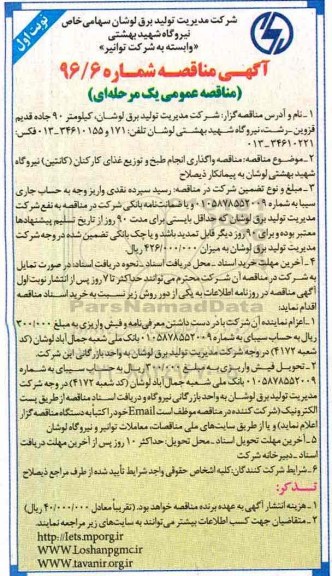 نوبت اول
شرکت مدیریت تولید برق لوشان سهامی خاص
نیروگاه شهید بهشتی
«وابسته به شرکت توانیر»
آگهی مناقصه شماره ۹۶/۶
(مناقصه عمومی یک مرحله‌ای)
۱ـ نام و آدرس مناقصه گزار: شرکت مدیریت تولید برق لوشان، کیلومتر ۹۰ جاده قدیم
قزوین ـ رشت، نیروگاه شهید بهشتی لوشان تلفن: ۱۷۱ و ۳۴۶۱۰۱۵۵ـ۰۱۳ فکس:
۳۴۶۱۰۲۲۱ـ۰۱۳
۲ـ موضوع مناقصه: مناقصه واگذاری انجام طبخ و توزیع غذای کارکنان (کانتین) نیروگاه
شهید بهشتی لوشان به پیمانکار ذیصلاح
۳ـ مبلغ و نوع تضمین شرکت در مناقصه: رسید سپرده نقدی واریز وجه به حساب جاری
سیبا به شماره ۰۱۰۵۸۷۸۵۵۲۰۰۹ و یا ضمانتنامه بانکی شرکت در مناقصه به نفع شرکت
مدیریت تولید برق لوشان که حداقل بایستی برای مدت ۹۰ روز از تاریخ تسلیم پیشنهادها
معتبر بوده و برای ۹۰ روز دیگر قابل تمدید باشد و یا چک بانکی تضمین شده در وجه شرکت
مدیریت تولید برق لوشان به میزان ۴۲۶/۰۰۰/۰۰۰ ریال.
۴ـ آخرین مهلت خرید اسناد ـ محل دریافت اسناد ـ نحوه دریافت اسناد: در صورت تمایل
به شرکت در مناقصه آن شرکت محترم می توانند حداکثر تا ۷ روز پس از انتشار نوبت اول
آگهی مناقصه در روزنامه اطلاعات به یکی از دور روش زیر نسبت به خرید اسناد مناقصه
اقدام نماید:
۱ـ اعزام نماینده آن شرکت با در دست داشتن معرفی نامه و فیش واریزی به مبلغ ۳۰۰/۰۰۰
ریال به حساب سیبای به شماره ۰۱۰۵۸۷۸۵۵۲۰۰۹ بانک ملی شعبه جمال آباد لوشان (کد
شعبه ۴۱۷۲) در وجه شرکت مدیریت تولید برق لوشان به واحد بازرگانی این شرکت.
۲ـ تحویل فیش واریزی به مبلغ ریال به حساب سیبای به شماره
۰۱۰۵۸۷۸۵۵۲۰۰۹ بانک ملی شعبه جمال آباد لوشان (کد شعبه ۴۱۷۲) در وجه شرکت
مدیریت تولید برق لوشان به واحد بازرگانی نیروگاه و دریافت اسناد مناقصه از طریق پست
الکترونیک (شرکت کننده در مناقصه موظف است Email خود را کتباً به دستگاه مناقصه گزار
اعلام نماید) و یا از طریق سایت های ملی مناقصات، معاملات توانیر و نیروگاه لوشان
۵ـ آخرین مهلت تحویل اسناد ـ محل تحویل: حداکثر ۱۰ روز پس از آخرین مهلت دریافت
اسناد ـ دبیرخانه شرکت
۶ـ شرایط شرکت کنندگان: کلیه اشخاص حقوقی واجد شرایط تأیید شده از طرف مراجع ذیصلاح
تذکر:
۱ـ هزینه انتشار آگهی به عهده برنده مناقصه خواهد بود. (تقریباً معادل ۴۰/۰۰۰/۰۰۰ ریال)
۲ـ متقاضیان جهت کسب اطلاعات بیشتر می توانند به سایت های زیر مراجعه نمایند.
http://Iets.mporg.ir
WWW.Loshanpgmc.ir
WWW.tavanir.org.ir
ParsNamadData